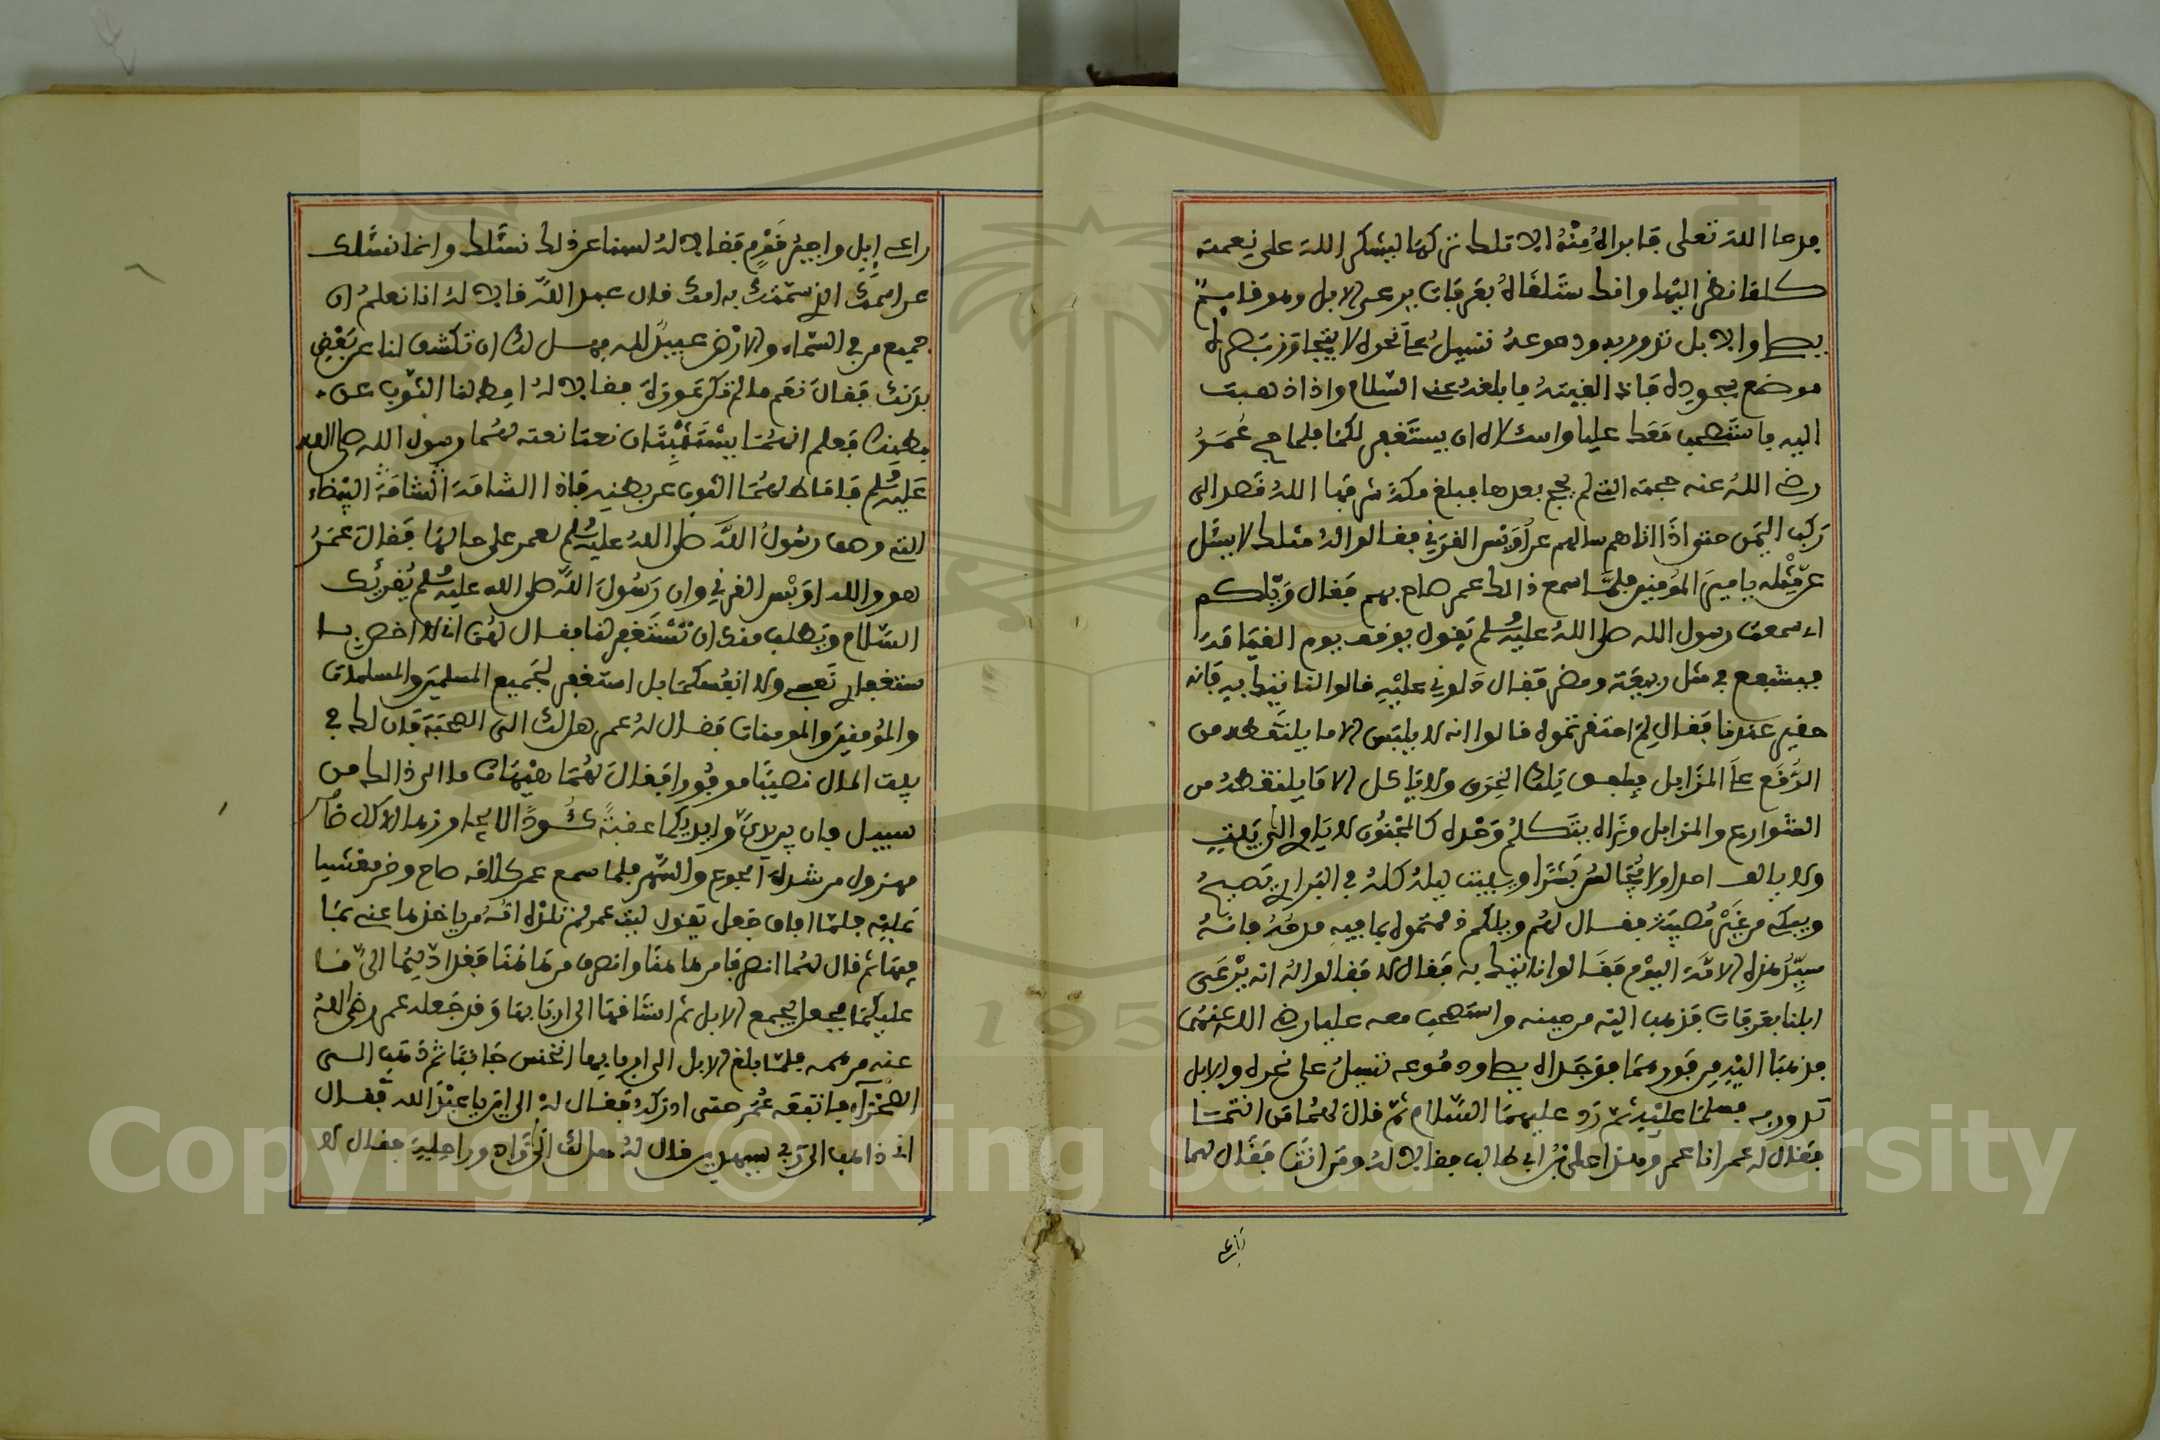 فدعا الله تعلى فابراه منه الا تلك تركها ليشكر الله على نعمته
كلما نظر اليها وانك ستلقاه بعرفات يرعى الابل وهو قايم
يصلي والابل تدور به ودموعه تسيل على نحره لا يتجاوز بصره
موضع سجوده فاذا لقيته فابلغه عني السلام واذا ذهبت
اليه فاستصحب معك عليا واسئلاه ان يستغفر لكما فلما حج عمر
رضي الله عنه حجته التي لم يحج بعدها فبلغ مكة شرفها الله قصد الى
ركب اليمن حتى اذا اتاهم سالهم عن اويس القرني فقالوا له مثلك لا يسئل
عن مثله يا امير المؤمنين فلما سمع ذالك عمر صاح بهم فقال ويلكم
اني سمعت رسول الله صلى الله عليه وسلم يقول يوقف يوم القيامة
فيشفع في مثل ربيعة ومضر فقال دلوني عليه قالوا لنا به فانه
حقير عندنا فقال لم احتقرتموه قالوا انه لا يلبس الا ما يلتقطه من
الرقع على المزابل تلك الخرق ولا ياكل الا ما يلتقطه من
الشوارع والمزابل ونراه يتكلم وحده كالمجنون لا ياوي الى بيت
ولا يالف احدا ولا يجالس بشرا ويبيت ليله كله في البراري يصيح
ويبكي من غير مصيبة فقال لهم ويلكم ذممتموه بما فيه مدحه فانه
سيد هذه الامة اليوم فقالوا به فقال لا فقالوا له انه يرعى
ابلنا بعرفات فذهب اليه من حينه واستصحب معه عليا رضي الله عنهما
فذهبا اليه من فورهما فوجداه يصلي ودموعه تسيل على نحره والابل
تدور به فسلما عليه ثم رد عليهما السلام ثم قال لهما من انتما
فقال له عمر انا عمر وهذا علي بن ابي طالب فقالا له ومن انت فقال لهما
راعي
راعي ابل واجير قوم فقالا له لسنا عن ذلك نسئلك وانما نسئلك
عن اسمك الذي سمتك به امك قال عبد الله قالا له انا نعلم ان
جميع من في السماء والارض عبيد الله فهل لك ان تكشف لنا عن بعض
بدنك فقال نعم ما لم تذكر عورة فقالا له امط لنا الثوب عن
بطنك فعلم انهما يستثبتان نعتا نعته لهما رسول الله صلى الله
عليه وسلم فاماط لهما الثوب عن بطنه فاذا الشامة الشامة البيضاء
التي وصف رسول الله صلى الله عليه وسلم لعمر على حالها فقال عمر
هو والله اويس القرني وان رسول الله صلى الله عليه وسلم يقرئك
السلام ويطلب منك ان تستغفر لنا فقال لهما اني لا اخص با
ستغفاري نفسي ولا انفسكما بل استغفر لجميع المسلمين والمسلمات
والمؤمنين والمومنات فقال له عمر هل لك الى الصحبة فان لك في
بيت المال نصيبا موفورا فقال لهما هيهات ما الى ذالك من
سبيل فان بين يدي وايديكما عقبة كئودا لا يجاوزها الا كل ضامر
مهزول من شدة الجوع والسهر فلما سمع عمر كلامه صاح وخر مغشيا
عليه فلما افاق جعل يقول ليت عمر لم تلده امه من ياخذها عني بما
فيها ثم قال لهما انصرفا من هاهنا وانصرف من هاهنا فقد اذيتما الي
عليكما فجعل يجمع الابل ثم اساقها الى اربابها وقد جعله عمر رضي الله
عنه من همه فلما بلغ الابل الى اربابها انخنس جانبا ثم ذهب الى
الصحراء فاتبعه عمر حتى ادركه فقال له الى اين يا عبد الله فقال
اني ذاهب الى ربي سيهدين قال له هل لك الى زاد وراحلة فقال لا